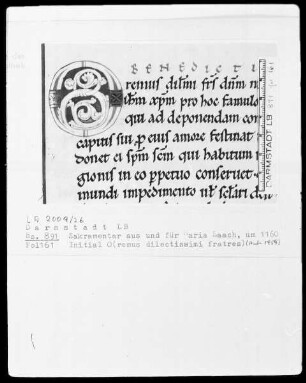 BENEDICTI
remus dilmi frs dnm n
ihm xpm pro hoc famulo
qui ad deponendam com
capitis sui p eius amore festinat
donet ei spm scm qui habitum r
gionis in eo ppetuo conseruet
mundi impedimento ul selari desi
DARMSTADT LB
LA 2009/26
Darmstadt LB
Hs. 891 Sakramentar aus und für Maria Laach, um 1160
Fol161 Initial O(remus dilectissimi fratres)